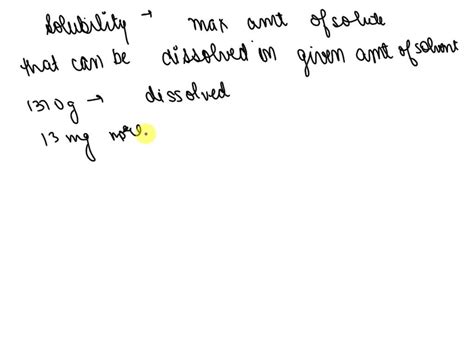 Solubility → max amt of solute
that can be dissolved in given amt of solvent
1310g → dissolved
13 mg more.